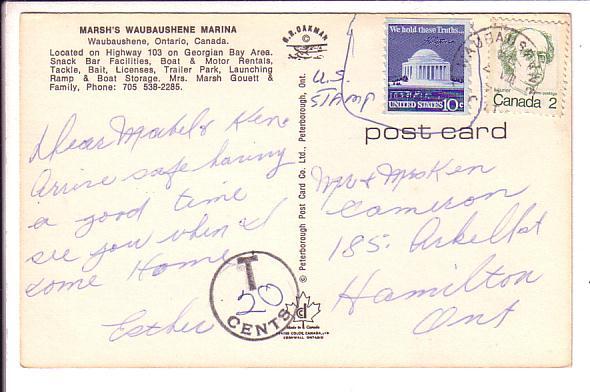 MARSH'S WAUBAUSHENE MARINA
Waubaushene, Ontario, Canada.
Located on Highway 103 on Georgian Bay Area.
Snack Bar Facilities, Boat & Motor Rentals,
Tackle, Bait, Licenses, Trailer Park, Launching
Ramp & Boat Storage. Mrs. Marsh Gouett &
Family, Phone: 705 538-2285.
Dear Mabel & Ken
Arrive safe having
a good time
see you when I
come Home
Esther
T
20
CENTS
G.R. OAKMAN
© Peterborough Post Card Co. Ltd., Peterborough, Ont.
Made in Canada
U.S
STAMP
We hold these Truths...
UNITED STATES 10c
WAUBAUSHENE
Canada 2
post card
Mr & Mrs Ken
Cameron
185. Arkell St
Hamilton
Ont